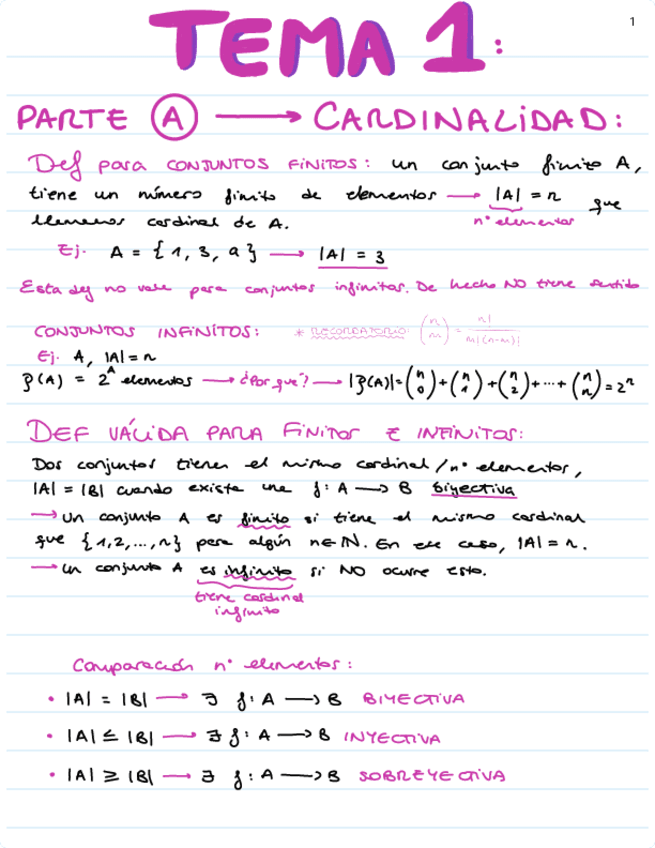 1
TEMA 1:
PARTE A → CARDINALIDAD:
Def para CONJUNTOS FINITOS: un conjunto finito A,
tiene un número finito de elementos → |A| = n que
llamamos cardinal de A. nº elementos
Ej. A = {1, 3, a} → |A| = 3
Esta def no vale para conjuntos infinitos. De hecho NO tiene sentido
CONJUNTOS INFINITOS: * RECORDATORIO: (n m) = n!/m!(n-m)!
Ej. A, |A| = n
P(A) = 2^A elementos → ¿Por qué? → |P(A)| = (n 0) + (n 1) + (n 2) + ... + (n n) = 2^n
DEF VÁLIDA PARA FINITOS E INFINITOS:
Dos conjuntos tienen el mismo cardinal / nº elementos,
|A| = |B| cuando existe una f: A → B biyectiva
→ Un conjunto A es finito si tiene el mismo cardinal
que {1,2,...,n} para algún n∈ℕ. En ese caso, |A| = n.
→ Un conjunto A es infinito si NO ocurre esto.
tiene cardinal
infinito
Comparación nº elementos:
• |A| = |B| → ∃ f: A → B BIYECTIVA
• |A| ≤ |B| → ∃ f: A → B INYECTIVA
• |A| ≥ |B| → ∃ f: A → B SOBREYECTIVA